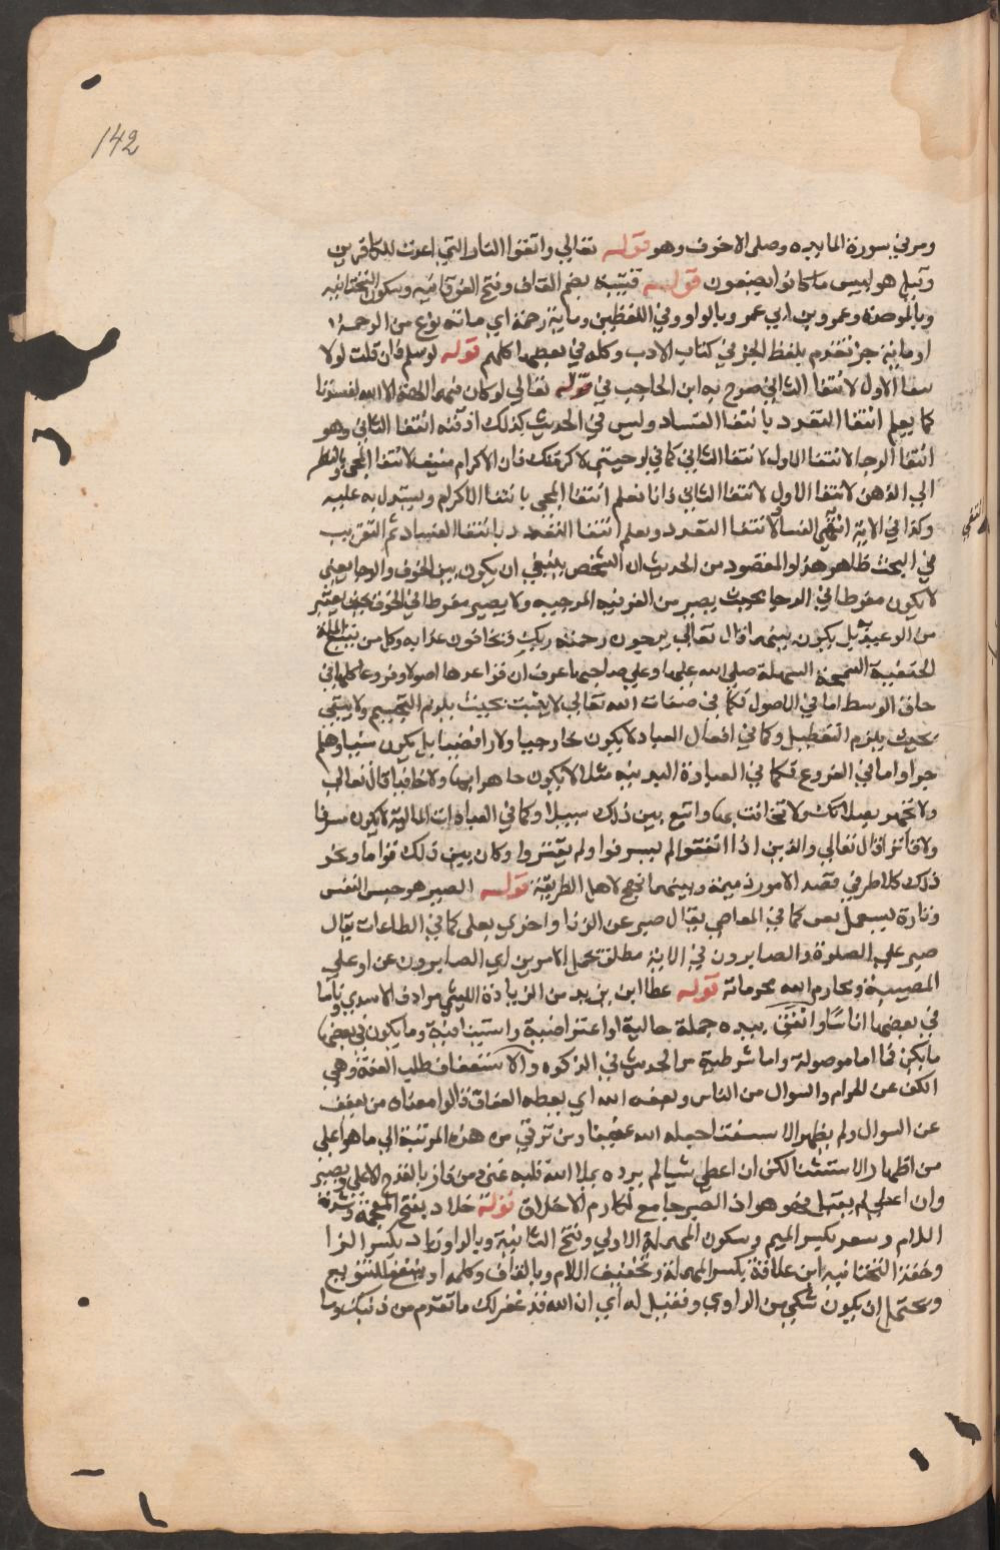 142
ومر في سورة المائدة وصلي الاخوف وهو قوله تعالي واتقوا النار التي اعدت للكافرين
وقيل هو لبيس ما كانوا يصنعون قوله قتيبة بضم القاف وفتح الفوقانيه وسكون التحتانيه
وبالموحدة وعمرو بن ابي عمرو بالواو في اللفظين وماية رحمة اي ماته نوع من الرحمة
او ماية جزء تقدم بلفظ الجزء في كتاب الادب وكله في بعضها كلهم قوله لو يعلم فان قلت لولا
الاول لانتفا الثاني صرح به ابن الحاجب في قوله تعالي لو كان فيهما الهة الا الله لفسدتا
كما يعلم انتفا التعدد بانتفا الفساد وليس في الحديث كذلك اذ فيه انتفا الثاني وهو
انتفا الرجا لانتفا الاول لانتفا الثاني كما في لو جيتني لاكرمتك فان الاكرام منتف لانتفا المجي
الي الذهن لانتفا الاول لانتفا الثاني فانا نعلم انتفا المجي بانتفا الاكرام ويستدل به عليه
وكذا في الاية انتفي الفسا لانتفا التعدد ويعلم انتفا التعدد بانتفا الفساد ثم التقريب
في البحث ظاهر هذا والمقصود من الحديث ان الشخص ينبغي ان يكون بين الخوف والرجا يعني
لا يكون مفرطا في الرجا بحيث يصير من الفرقه المرجيه ولا يصير مفرطا في الخوف بحيث يصير
من الوعيديه بل يكون بينهما قال تعالي يرجون رحمته ربك ويخافون عذابه وكل من تتبع الملة
الحنيفية السمحة السهلة صلي الله عليها وعلي صاحبها عرف ان قواعدها اصولا وفروعا كلها في
حاق الوسط اما في الاصول فكما في صفات الله تعالي لا يثبت بحيث يلزم التجسيم ولا ينفي
بحيث يلزم التعطيل وكما في افعال العباد لا يكون خارجيا ولا رافضيا بل يكون سنيا وهلم
جرا واما في الفروع فكما في العبادة البدنيه مثلا لا يكون جاهرا بها ولا خافيا قال تعالي
ولا تجهر بصلاتك ولا تخافت بها وابتغ بين ذلك سبيلا وكما في العبادات المالية لا يكون مسرفا
ولا قاترا قال تعالي والذين اذا انفقوا لم يسرفوا ولم يقتروا وكان بين ذلك قواما وعلي
ذلك كلا طرفي قصد الامور ذميمة وبينهما نهج لاهل الطريقة قوله الصبر هو حبس النفس
وتارة يستعمل بعن كما في المعاصي يقال صبر عن الزنا واخري بعلي كما في الطاعات يقال
صبر علي الصلوة والصابرون في الاية مطلق يحتمل الامرين اي الصابرون عن او علي
المصيبة ومحارم الله محرماته قوله عطا ابن يزيد من الزيادة الليثي مرادف الاسدي وناسا
في بعضها اناسا وانفق بيده جملة حالية او اعتراضية واستينافية وما يكون في بعضها
ما يكن فما اما موصولة واما شرطية مر الحديث في الزكوه والاستعفاف طلب العفة وهي
الكف عن الحرام والسوال من الناس ويعفه الله اي يعطه العفاف قالوا معناه من يعفف
عن السوال ولم يظهر الاستغنا جعله الله عفيفا ومن ترقي من هذه المرتبة الي ما هو اعلي
من اظهار الاستغنا لكن ان اعطي شيا لم يرده يملا الله قلبه غني ومن فاز بالقدح الاعلي وتصبر
وان اعطي لم يقبل فهو هو اذ الصبر جامع لمكارم الاخلاق قوله خلاد بفتح المعجمة وشدة
اللام ومسعر بكسر الميم وسكون المهملة الاولي وفتح الثانية وبالراء وزياد بكسر الزا
وخفة التحتانيه ابن علاقة بكسر المهملة وتخفيف اللام وبالقاف وكلمة او للتنويع
ويحتمل ان يكون شكي من الراوي وفقيل له اي ان الله قد غفر لك ما تقدم من ذنبك وما